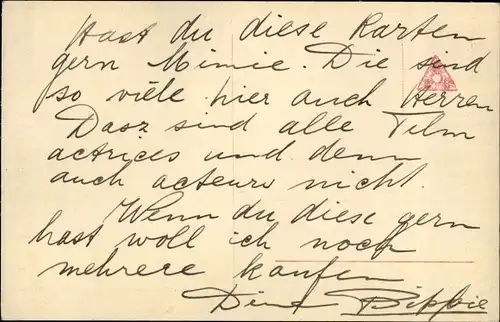 Hast du diese Karten
gern Mimie. Die sind
so viele hier auch Herren
Dasz sind alle Film
actrices und denn
auch acteurs nicht.
Wenn du diese gern
hast woll ich noch
mehrere kaufen
Deine Bippie